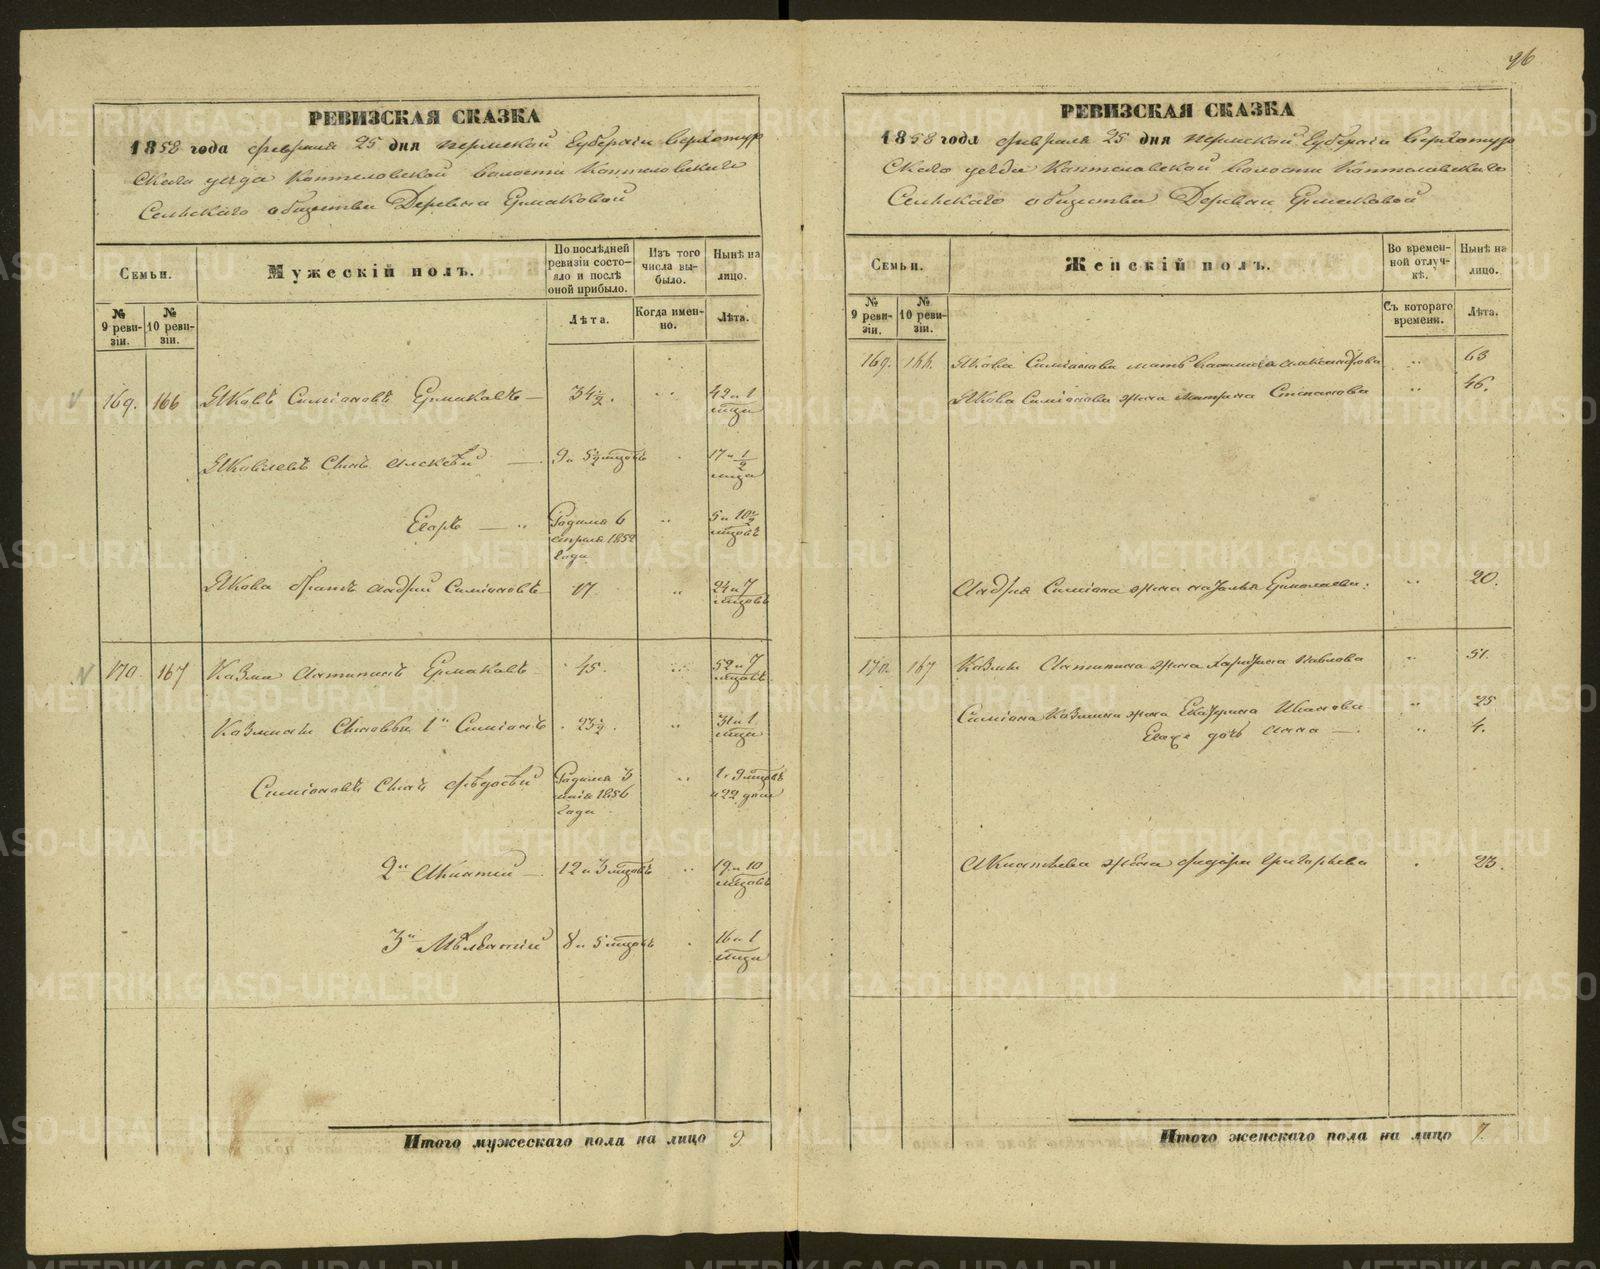 96
РЕВИЗСКАЯ СКАЗКА
1858 года февраля 25 дня Пермской Губернiи Верхотур
скаго уезда Коптеловской волости Коптеловскаго
Сельскаго общества Деревни Ермаковой
Семьи.
Мужескій полъ.
По послѣдней ревизіи состояло и послѣ оной прибыло.
Изъ того числа выбыло.
Нынѣ на лицо.
№ 9 ревизіи.
№ 10 ревизіи.
Лѣта.
Когда именно.
Лѣта.
169. 166 Яковъ Симіоновъ Ермаковъ — 34½. " 42 и 1 мца
Яковлевъ Сынъ Алексѣй — 9 и 5½ мцовъ " 17 и ½ мца
Егоръ — " Родился 6 апреля 1852 года " 5 и 10½ мцовъ
Якова братъ Андрей Симіоновъ 17 " 24 и 7 мцовъ
170 167 Козма Антипинъ Ермаковъ 45. " 52 и 7 мцовъ
Козмины Сыновья 1й Симіонъ 23½. " 31 и 1 мца
Симіоновъ Сынъ Ѳедосѣй Родился 3 мая 1856 года " 1 и 9 мцовъ и 22 дня
2й Игнатій — 12 и 3 мцовъ " 19 и 10 мцовъ
3й 8 и 5 мцовъ " 16 и 1 мца
Итого мужескаго пола на лицо 9
РЕВИЗСКАЯ СКАЗКА
1858 года февраля 25 дня Пермской Губернiи Верхотур
скаго уезда Коптеловской волости Коптеловскаго
Сельскаго общества Деревни Ермаковой
Семьи.
Женскій полъ.
Во временной отлучкѣ.
Нынѣ на лицо.
№ 9 ревизіи.
№ 10 ревизіи.
Съ котораго времени.
Лѣта.
169. 166. Якова Симіонова мать Александрова " 63
Якова Симіонова жена Матрена Степанова " 46.
Андрея Симіона жена Наталья Ермолаева. " 20.
170. 167 Козмы Антипина жена Павлова " 51.
Симіона Козмина жена Екатерина Иванова " 25
Ево дочь Анна — " 4.
Игнатьева жена Григорьева " 23.
Итого женскаго пола на лицо 7.
METRIKI.GASO-URAL.RU